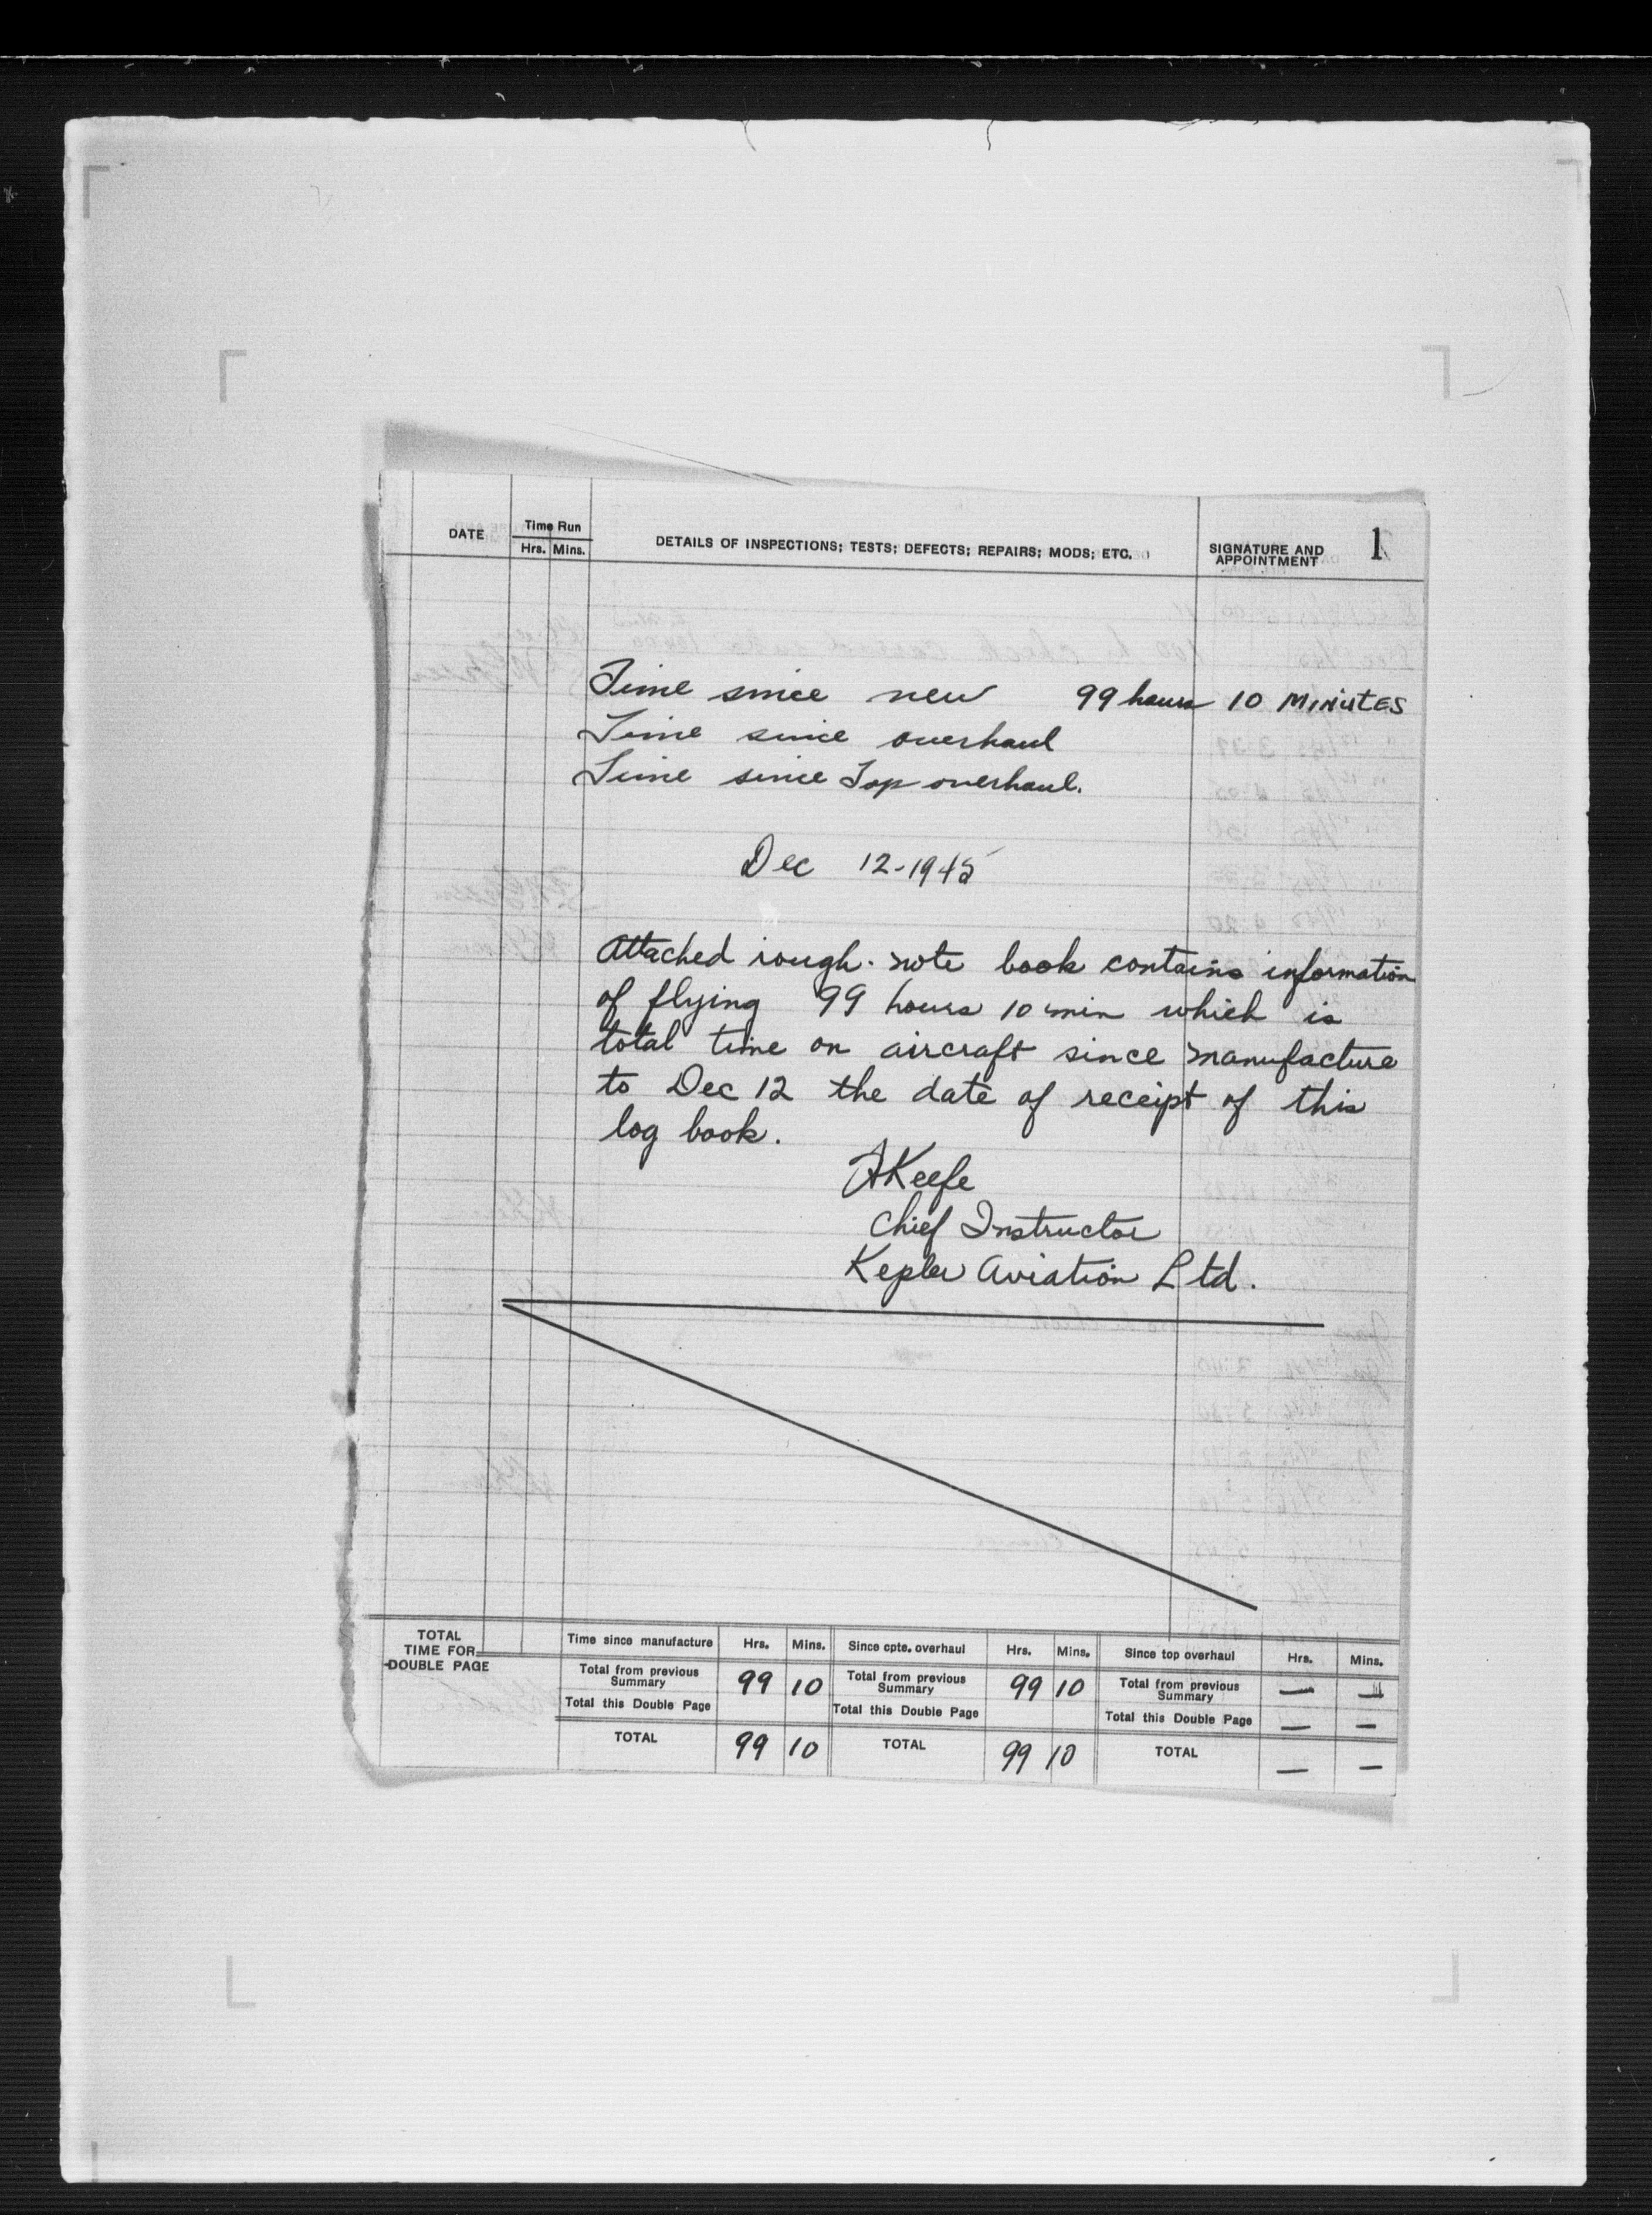 DATE Time Run DETAILS OF INSPECTIONS; TESTS; DEFECTS; REPAIRS; MODS; ETC. SIGNATURE AND APPOINTMENT 1
Hrs. Mins.
Time since new 99 hours 10 MINUTES
Time since overhaul
Time since Top overhaul.
Dec 12-1945
Attached rough. note book contains information
of flying 99 hours 10 min which is
total time on aircraft since manufacture
to Dec 12 the date of receipt of this
log book.
AKeefe
Chief Instructor
Kepler Aviation Ltd.
TOTAL TIME FOR DOUBLE PAGE
Time since manufacture Hrs. Mins. Since cpte. overhaul Hrs. Mins. Since top overhaul Hrs. Mins.
Total from previous Summary 99 10 Total from previous Summary 99 10 Total from previous Summary — —
Total this Double Page Total this Double Page Total this Double Page — —
TOTAL 99 10 TOTAL 99 10 TOTAL — —